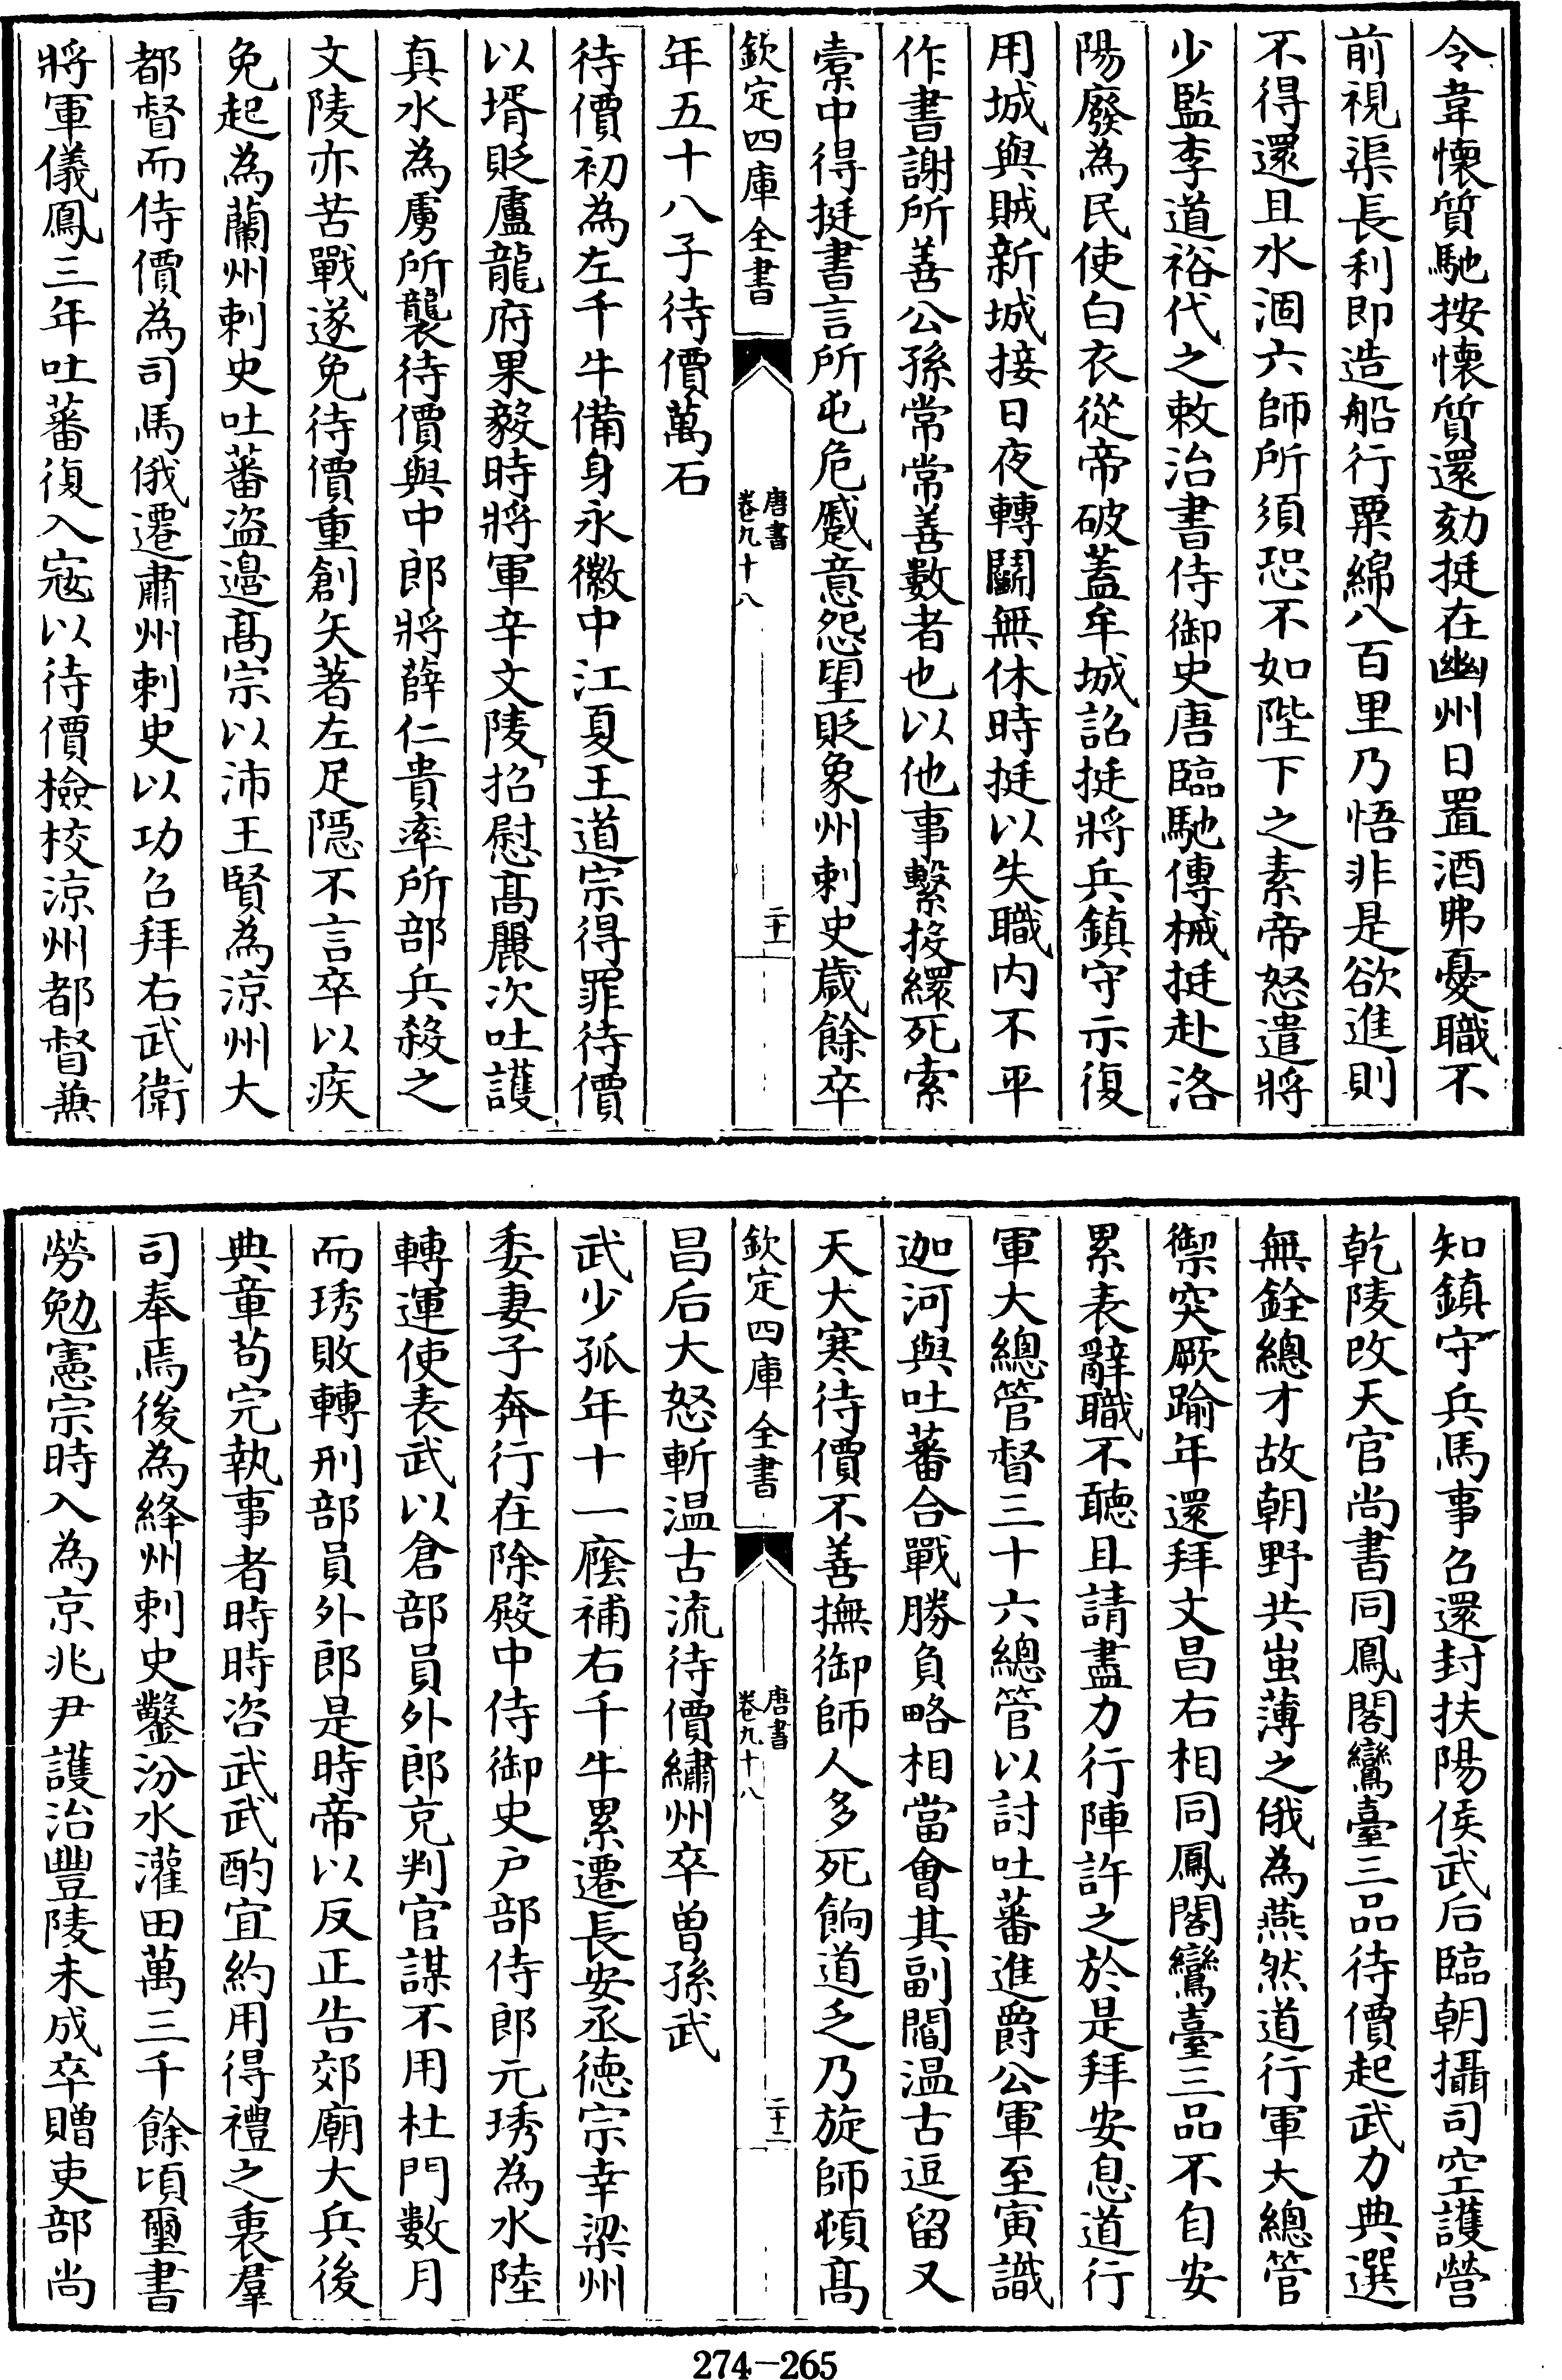 令韋懐質馳按懐質還劾挺在幽州日置酒弗憂職不
前視渠長利即造船行粟綿八百里乃悟非是欲進則
不得還且水涸六師所須恐不如陛下之素帝怒遣將
少監李道裕代之敕治書侍御史唐臨馳傳械挺赴洛
陽廢為民使白衣從帝破蓋牟城詔挺將兵鎮守示復
用城與賊新城接日夜轉鬭無休時挺以失職内不平
作書謝所善公孫常常善數者也以他事繫投繯死索
橐中得挺書言所屯危蹙意怨望貶象州刺史歳餘卒
欽定四庫全書
唐書
卷九十八
二十一
年五十八子待價萬石
待價初為左千牛備身永徽中江夏王道宗得罪待價
以壻貶盧龍府果毅時將軍辛文陵招慰髙麗次吐護
真水為虜所襲待價與中郎將薛仁貴率所部兵殺之
文陵亦苦戰遂免待價重創矢著左足隠不言卒以疾
免起為蘭州刺史吐蕃盗邊髙宗以沛王賢為涼州大
都督而侍價為司馬俄遷肅州刺史以功召拜右武衛
將軍儀鳳三年吐蕃復入寇以待價檢校涼州都督兼
知鎮守兵馬事召還封扶陽侯武后臨朝攝司空護營
乾陵改天官尚書同鳳閣鸞臺三品待價起武力典選
無銓總才故朝野共蚩薄之俄為燕然道行軍大總管
禦突厥踰年還拜文昌右相同鳳閣鸞臺三品不自安
累表辭職不聽且請盡力行陣許之於是拜安息道行
軍大總管督三十六總管以討吐蕃進爵公軍至寅識
迦河與吐蕃合戰勝負略相當會其副閻温古逗留又
天大寒待價不善撫御師人多死餉道乏乃旋師頓髙
欽定四庫全書
唐書
卷九十八
二十二
昌后大怒斬温古流待價繡州卒曽孫武
武少孤年十一廕補右千牛累遷長安丞徳宗幸梁州
委妻子奔行在除殿中侍御史戸部侍郎元琇為水陸
轉運使表武以倉部員外郎充判官謀不用杜門數月
而琇敗轉刑部員外郎是時帝以反正告郊廟大兵後
典章苟完執事者時時咨武武酌宜約用得禮之衷羣
司奉焉後為絳州刺史鑿汾水灌田萬三千餘頃璽書
勞勉憲宗時入為京兆尹護治豐陵未成卒贈吏部尚
274-265